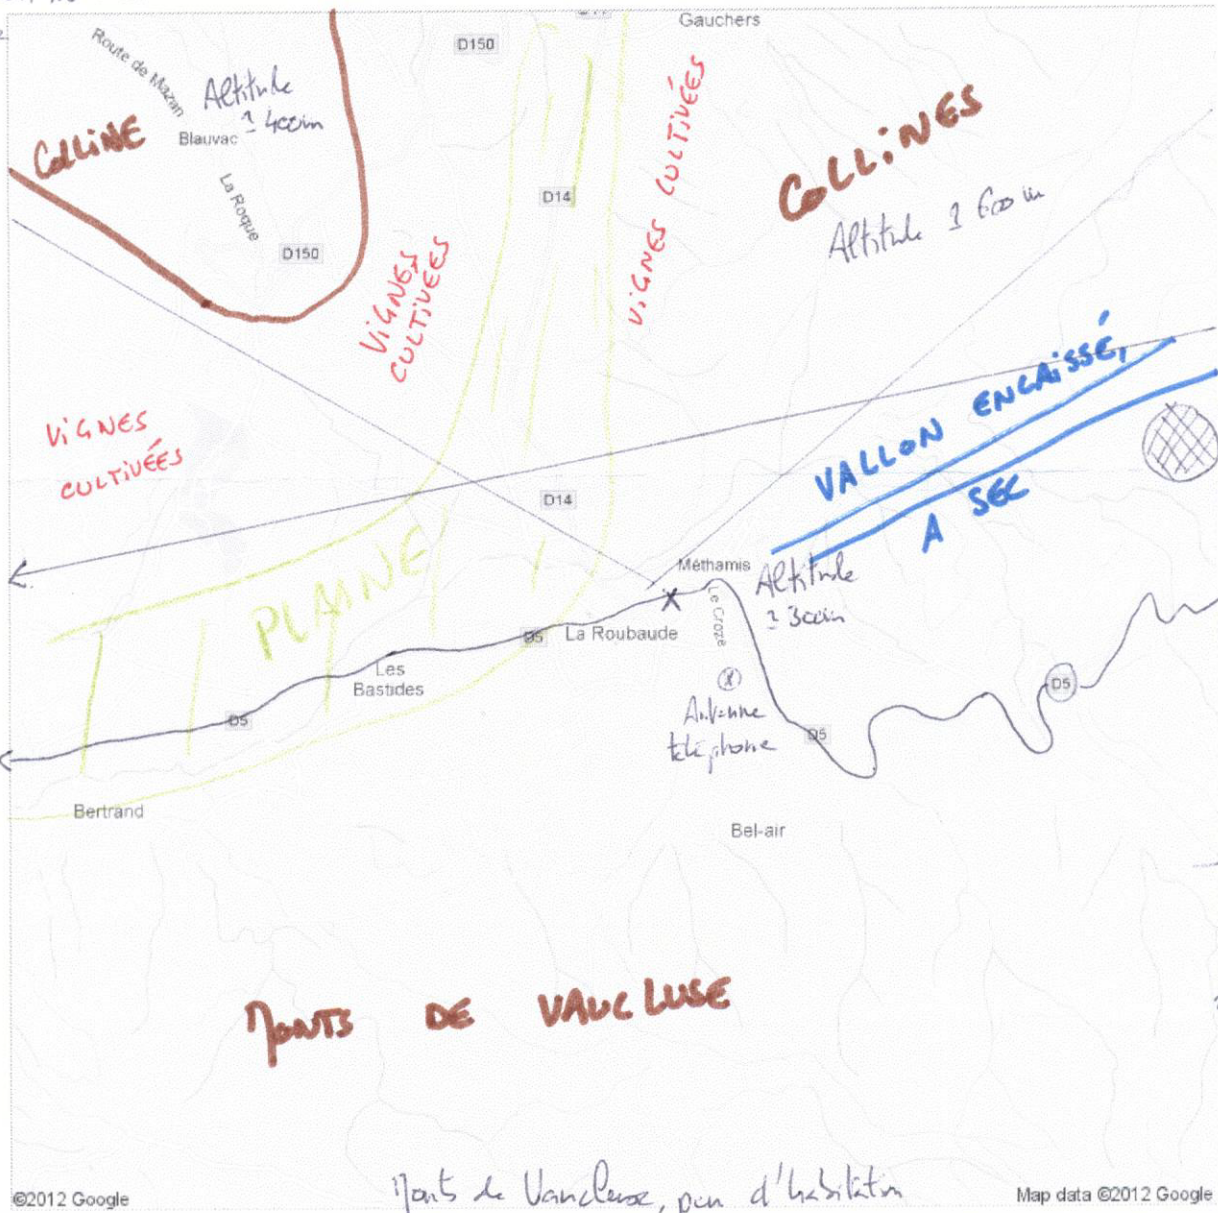 Gauchers
D150
Route de Mazan
Altitude
± 400m
Blauvac
COLLINE
La Roque
D150
D14
VIGNES CULTIVÉES
COLLINES
Altitude ± 600 m
VIGNES
CULTIVÉES
VIGNES
CULTIVÉES
VALLON ENCAISSÉ,
A SEC
D14
PLAINE
Méthamis
Altitude
± 300m
Le Croze
X
D5
La Roubaude
Les
Bastides
D5
Antenne
téléphone
D5
D5
Bertrand
Bel-air
MONTS DE VAUCLUSE
Monts de Vaucluse, peu d'habitation
©2012 Google
Map data ©2012 Google